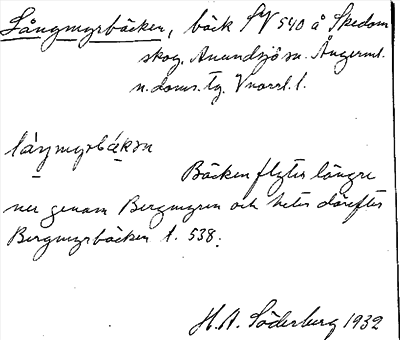 Långmyrbäcken, bäck SV 540 å Skedom
skog, Anundsjö sn. Ångerml.
n. doms. tg. Vnorrl. l.
låŋmyrbäkən
Bäcken flyter längre
ner genom Bergmyren och heter därefter
Bergmyrbäcken t. 538.
H. A. Söderberg 1932